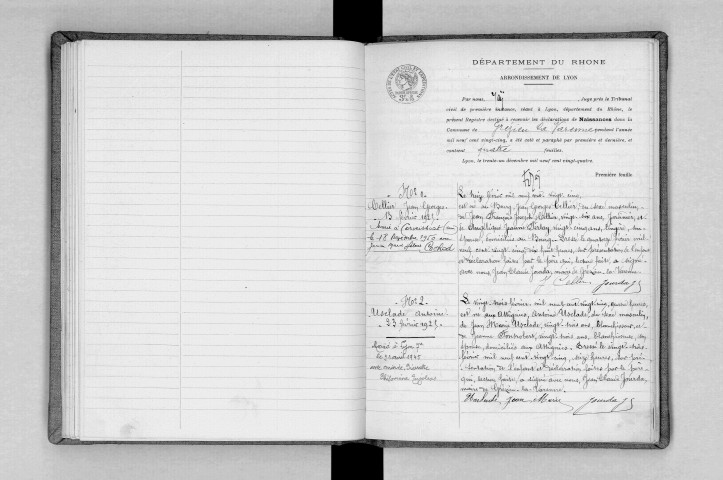 DÉPARTEMENT DU RHONE
ARRONDISSEMENT DE LYON
Par nous, Juge près le Tribunal
civil de première instance, séant à Lyon, département du Rhône, le
présent Registre destiné à recevoir les déclarations de Naissances dans la
Commune de Grézieu la Varenne pendant l'année
mil neuf cent vingt-cinq, a été coté et paraphé par première et dernière, et
contient quatre feuilles.
Lyon, le trente-un décembre mil neuf cent vingt-quatre.
Première feuille
N° 1
Cellier Jean Georges
13 février 1925
Marié à
le 18 Novembre 1950 avec
Le treize février mil neuf cent vingt cinq,
est né au Bourg, Jean Georges Cellier, du sexe masculin,
de Jean François Joseph Cellier, vingt six ans, jardinier, et
de Angélique Jeanne vingt cinq ans, lingère, son
épouse, domiciliés au Bourg. Dressé le quatorze février mil
neuf cent vingt cinq, dix heures, sur présentation de l'enfant
et déclaration faites par le père qui, lecture faite, a signé
avec nous, Jean Claude Jourda, maire de Grézieu la Varenne
J. Cellier Jourda
N° 2.
Usclade Antoine
23 février 1925.
Marié à Lyon 7e
le août 1945
avec
Philomène
Le vingt trois février mil neuf cent vingt cinq, heures,
est né aux Attignies, Antoine Usclade, du sexe masculin,
de Jean Marie Usclade, vingt trois ans, blanchisseur, et
de Jeanne vingt trois ans, blanchisseuse, son
épouse, domiciliés aux Attignies. Dressé le vingt trois
février mil neuf cent vingt cinq, dix heures, sur présen-
-tation de l'enfant et déclaration faites par le père
qui, lecture faite, a signé avec nous, Jean Claude Jourda,
maire de Grézieu la Varenne.
Usclade Jean Marie Jourda